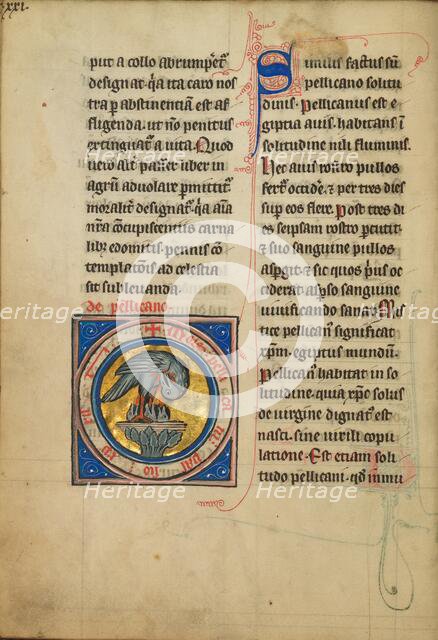 xxxi.
put a collo abrumpet͛
designat͛ q̄a ita caro nos
tra p͛ abstinentiam est af
fligenda. ut nō penitus
extinguat͛ a uita. Quod
uero alt͛ passer liber in
agrū aduolare p͛mittit͛.
moralit͛ designat͛. q̄a aīa
n̄ra concupiscentiis carna
lib; edomitis. pennis con
templat̄ois ad celestia
sit subleuanda.
de pellicano
Similis factus sū
pellicano solitu
dinis. Pellicanus est e
giptia auis. habitans ī
solitudine nili fluminis.
Hec auis rostro pullos
fert͛ occide͛. & per tres dies
sup͛ eos flere. Post tres di
es seipsam rostro petit͛.
& suo sanguine pullos
asp͛git. & sic quos p͛us oc
ciderat asp͛so sanguine
uiuificando sanat. Mis
tice pellican͛ significat
xp̄m. egiptus mundū.
Pellican͛ habitat in so
litudine. quia xp̄c solus
de uirgine dignat͛ est
nasci. sine uirili copu
latione. Est etiam soli
tudo pellicani. qd̄ inmu
Heritage
Heritage
Heritage
Heritage
Heritage
Heritage